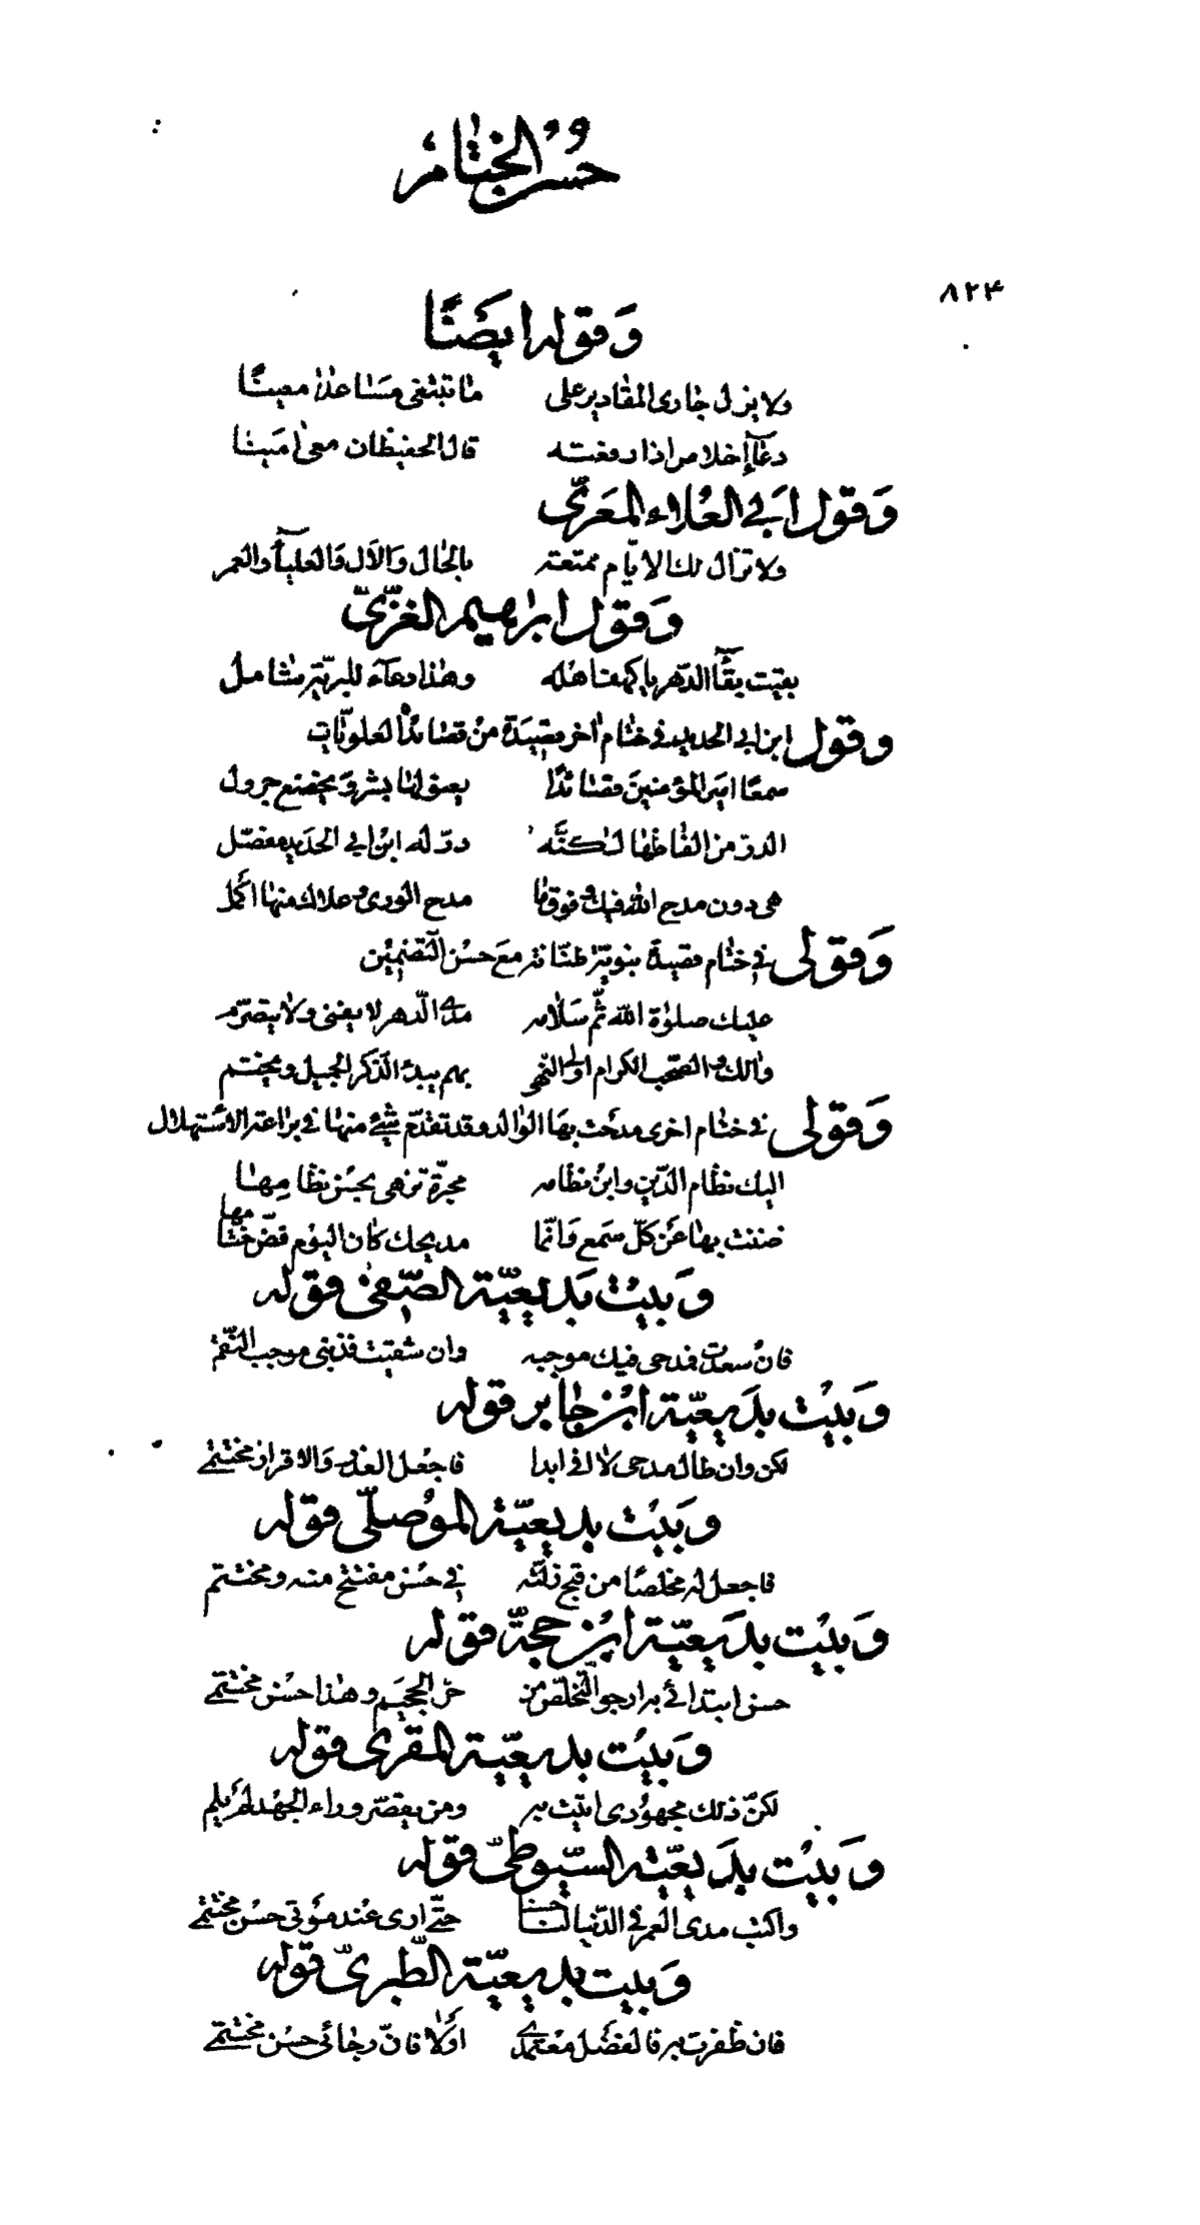 حُسْنُ الخِتَام
٨٢۴
وَقوله ايضًا
ولا يزل جارى المقادير على ما تبتغى مساعدا معينًا
دعآء إخلاص اذا رفعته قال الحفيظان معى امينا
وَقول ابَى العُلاء المعَرّى
ولا تزال لك الايّام ممتعة بالحال والآل والعليآء والعمر
وَقول ابراهيم الغزّىّ
بقيت بقآء الدّهر يا كهف اهله وهذا دعآء للبريّة شامل
وقول ابن ابى الحديد فى ختام اخر قصيدة من قصائده العلويّات
سمعًا امير المؤمنين قصائدًا يعنو لها بشر ويخضع جرول
الدرّ من الفاظها لكنّه درّ له ابن ابى الحديد مفصّل
هى دون مدح الله فيك وفوق ما مدح الورى وعلاك منها اكمل
وَقولى فى ختام قصيدة نبويّة طنّانة مع حسُن التضمين
عليك صلوٰة الله ثمّ سَلامه مدى الدّهر لا يفنى ولا يتصرّم
وآلك والصّحب الكرام اولى النّهى بهم يبدء الذّكر الجميل ويختم
وَقولى فى ختام اخرى مدحت بها الوالد وقد تقدّم شئ منها فى براعة الاستهلال
اليك نظام الدّين وابن نظامه مجرّة تزهى بحسن نظامِها
ضننت بها عَن كلّ سَمع وَانّما مديحك كان اليوم فضّ ختامها
وَبيت بَديعيّة الصّفى قوله
فان سعدت فمدحى فيك موجبه وان شقيت فذنبى موجب النّقم
وَبيت بدَيعيّة ابن جابر قوله
لكن وان طال مدحى لا افى ابدا فاجعل العذر والاقرار مختتمى
وَبيت بديعيّة الموُصلّى قوله
فاجعل له مخلصًا من قبح زلّته فى حسُن مفتتح منه ومختتم
وَبيت بدَيعيّة ابن حجّة قوله
حسن ابتدائى به ارجو التّخلص من حرّ الجحيم وهذا حسُن مختتمى
وَبيت بديعيّة المقرى قوله
لكنّ ذلك مجهودى اتيت به ومن يقصّر وراء الجهد لم يلم
وَبيت بدَيعيّة السّيوطىّ قوله
واكتب مدى العمر فى الدّنيا لنا حسنا حتّى ارى عند موتى حسن مختتمى
وَبيت بديعيّة الطّبرىّ قوله
فان ظفرت به فالفضل معتمدى اوَلا فانّ رجائى حسُن مختتمى